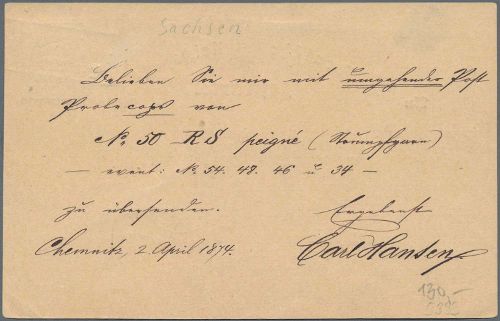 Sachsen
Belieben Sie mir mit umgehender Post
Probecops von
No. 50 RS peigné (Strumpfgarn)
— event: No. 54. 48. 46 u 34 —
zu übersenden.
Ergebenst
Chemnitz, 2 April 1874.
Carl Hansen
130,-